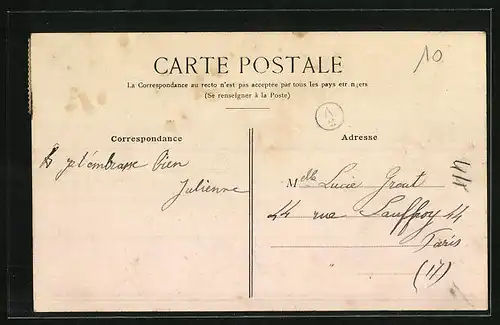 10
CARTE POSTALE
La Correspondance au recto n'est pas acceptée par tous les pays etr ngers
(Se renseigner à la Poste)
Correspondance
Adresse
je t'embrasse bien
Julienne
Melle Lucie Grout
44 rue Sauffroy 14
Paris
(17)